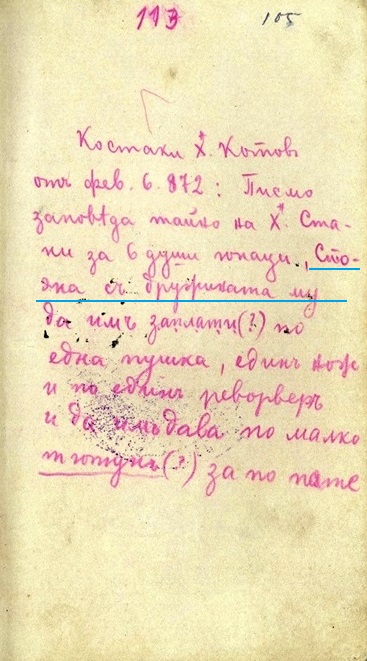 113 105
Костаки Х. Котовъ
отъ фев. 6. 872: Писмо
заповѣда тайно на Х. Ста-
ни за 6 души юнаци, Сто-
яна съ дружината му
да имъ заплати(?) по
една пушка, единъ ножъ
и по единъ реворверъ
и да имъ дава по малко
тютюнъ(?) за по пѫте